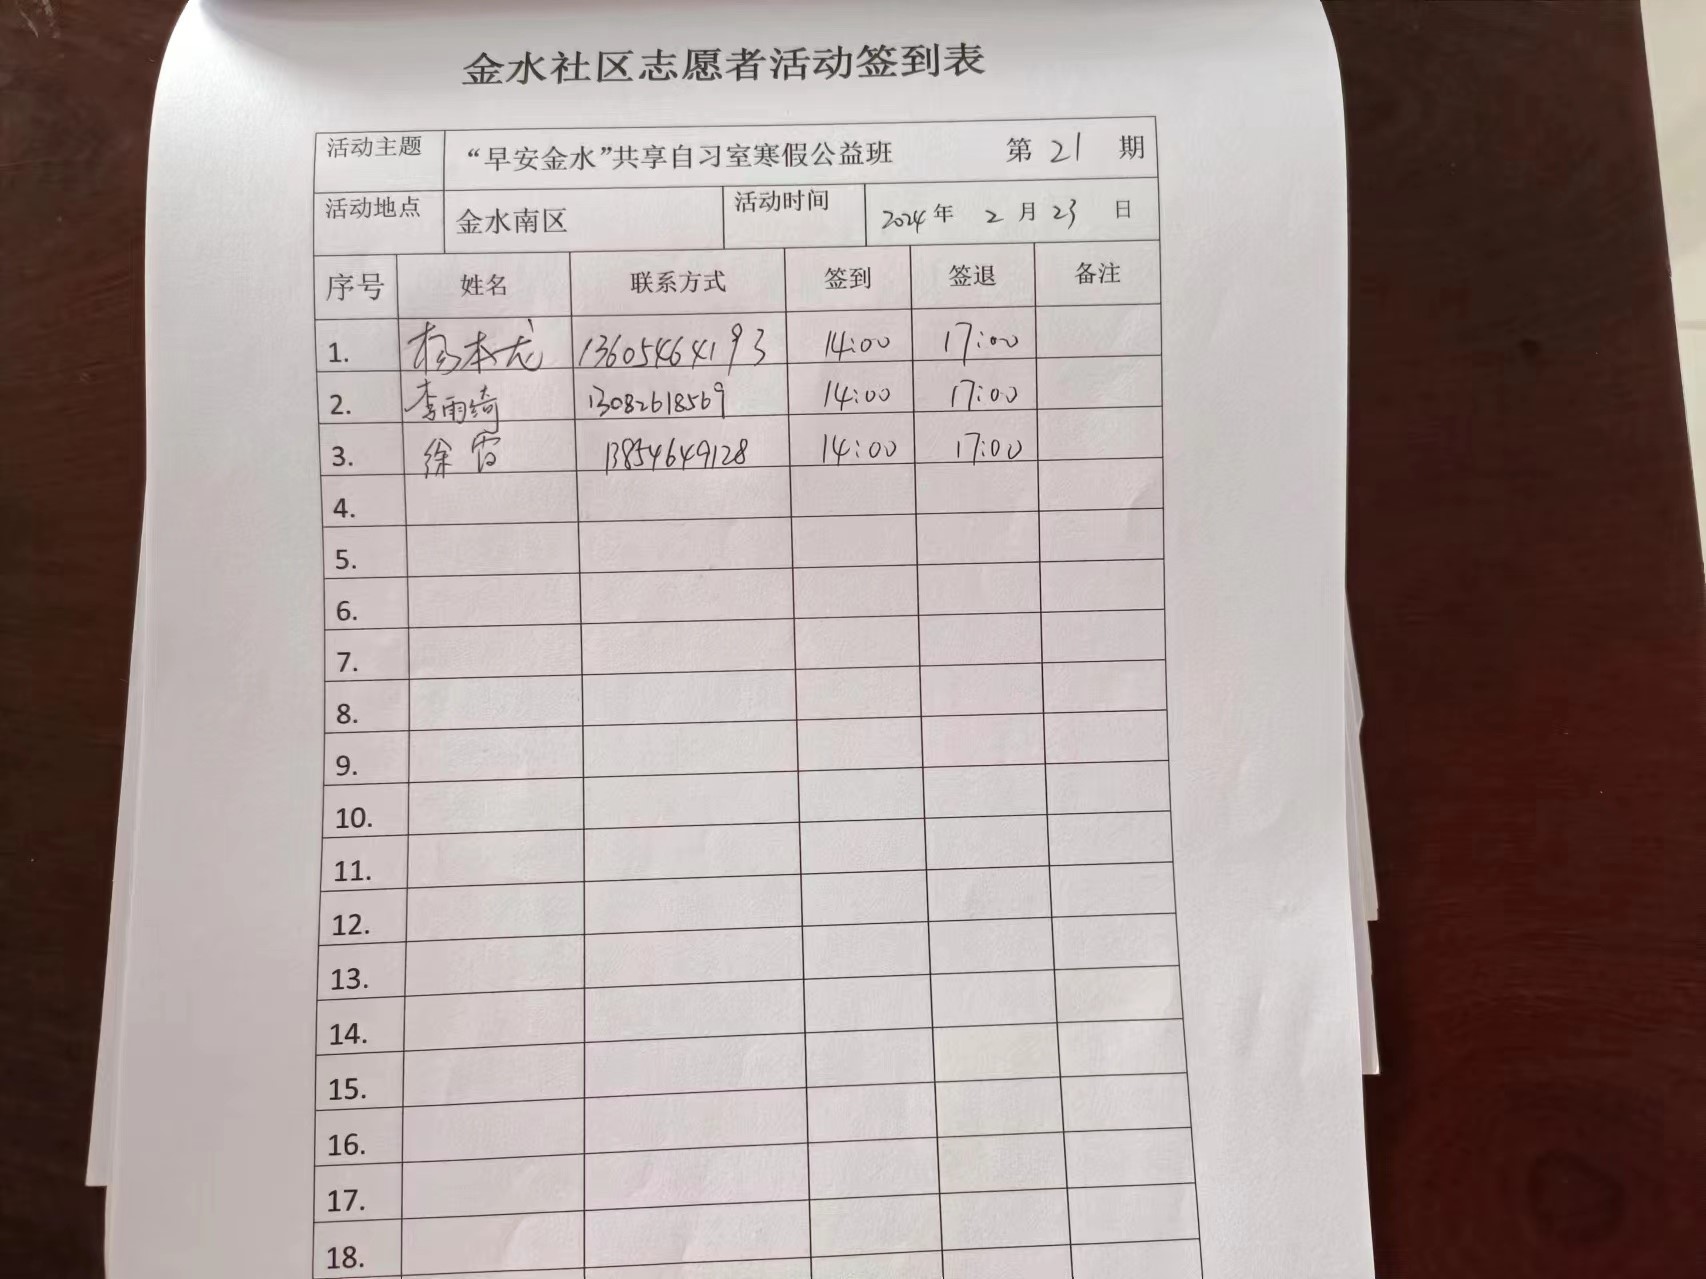 金水社区志愿者活动签到表
活动主题 “早安金水”共享自习室寒假公益班 第 21 期
活动地点 金水南区 活动时间 2024年 2月 23 日
序号 姓名 联系方式 签到 签退 备注
1. 杨本龙 13605464193 14:00 17:00
2. 李雨绮 13082618569 14:00 17:00
3. 徐 13854649128 14:00 17:00
4.
5.
6.
7.
8.
9.
10.
11.
12.
13.
14.
15.
16.
17.
18.